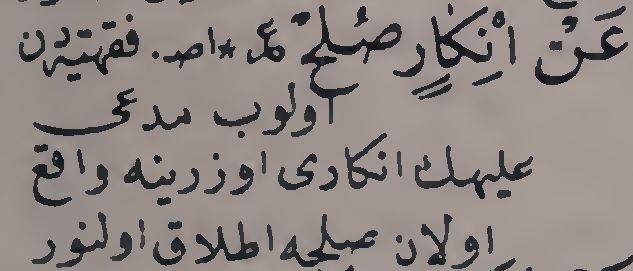 عَنْ اِنْكَارٍ صُلْحْ عر * اص. فقهيه‌دن
اولوب مدعى
عليهك انكارى اوزرينه واقع
اولان صلحه اطلاق اولنور